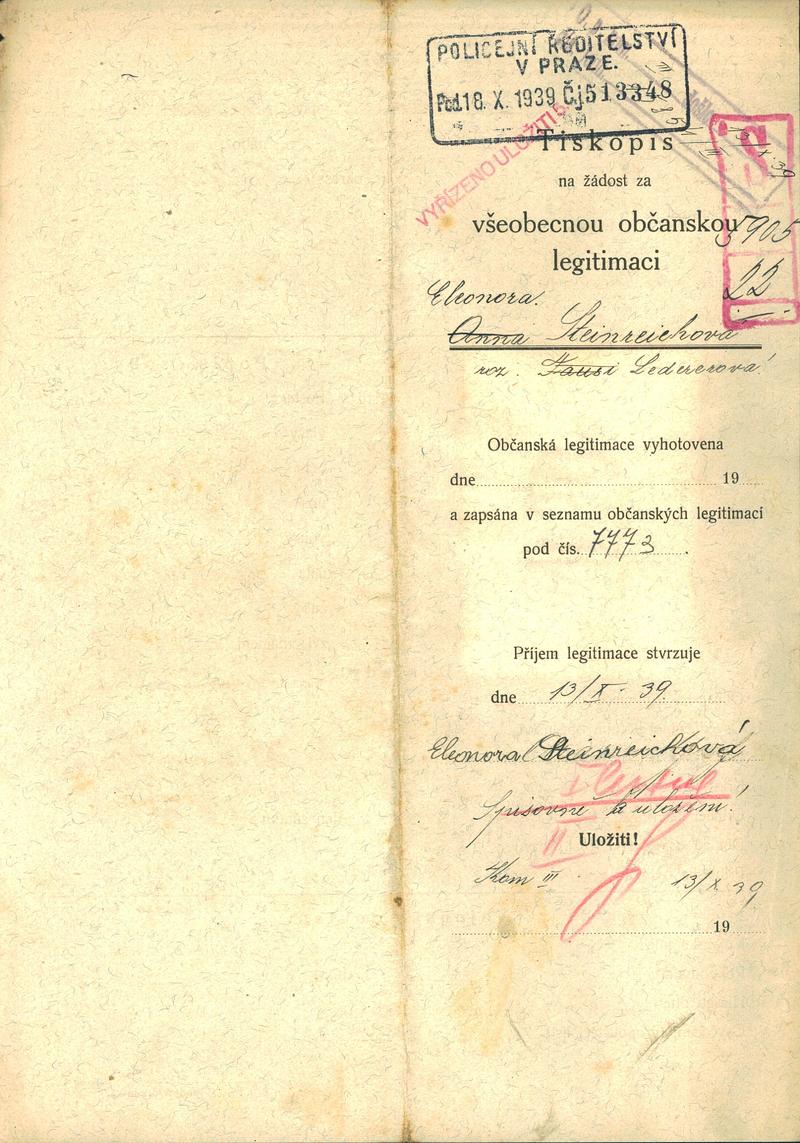 POLICEJNÍ ŘEDITELSTVÍ
V PRAZE.
Pod. 18. X. 1939 Čj 513348
VYŘÍZENO ULOŽITI
S
13/X. 39
Tiskopis
na žádost za
všeobecnou občanskou
5905
legitimaci
22
Eleonora.
Anna Steinreichova
roz. Fausi Ledererová!
Občanská legitimace vyhotovena
dne 19
a zapsána v seznamu občanských legitimací
pod čís. 7773.
Příjem legitimace stvrzuje
dne 13/X. 39
Eleonora Steinreichová
Spisovně k uložení!
II
Uložiti!
Kom III. 13/X 39
19